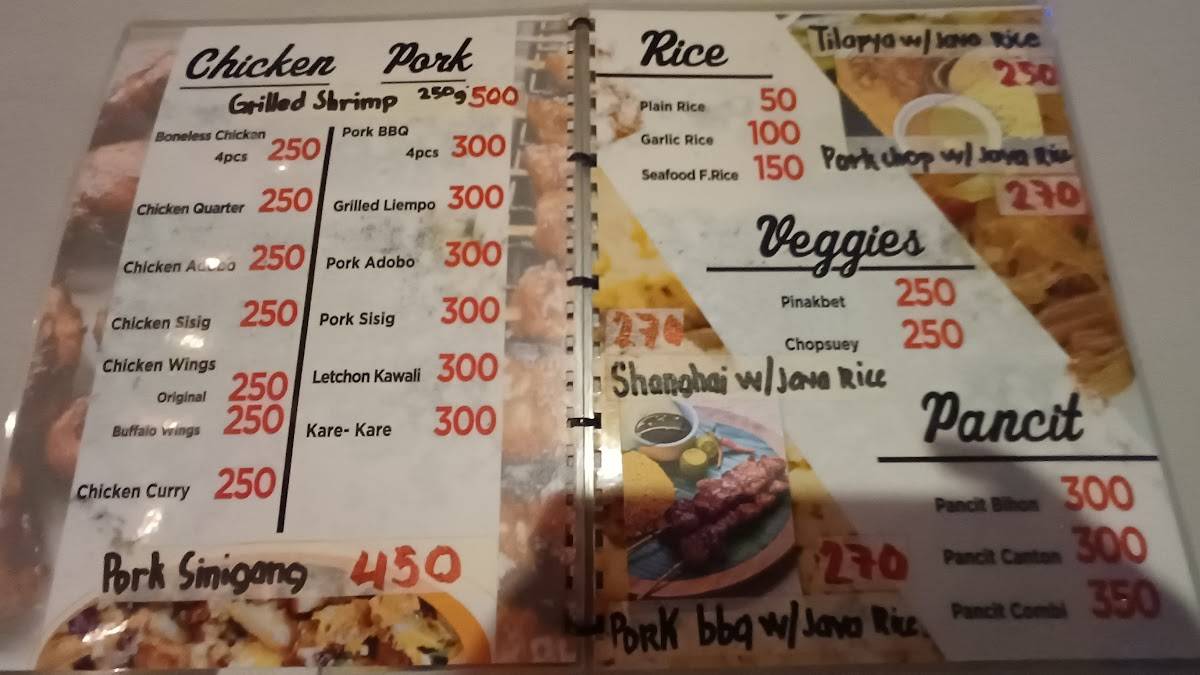 Chicken
Grilled Shrimp 250g 500
Boneless Chicken
4pcs 250
Chicken Quarter 250
Chicken Adobo 250
Chicken Sisig 250
Chicken Wings
Original 250
Buffalo wings 250
Chicken Curry 250
Pork
Pork BBQ
4pcs 300
Grilled Liempo 300
Pork Adobo 300
Pork Sisig 300
Letchon Kawali 300
Kare- Kare 300
Pork Sinigang 450
Rice
Plain Rice 50
Garlic Rice 100
Seafood F.Rice 150
Tilapya w/ Java Rice
250
Pork chop w/ Java Rice
270
Veggies
Pinakbet 250
Chopsuey 250
270
Shanghai w/ Java Rice
Pancit
Pancit Bihon 300
Pancit Canton 300
Pancit Combi 350
270
Pork bbq w/ Java Rice